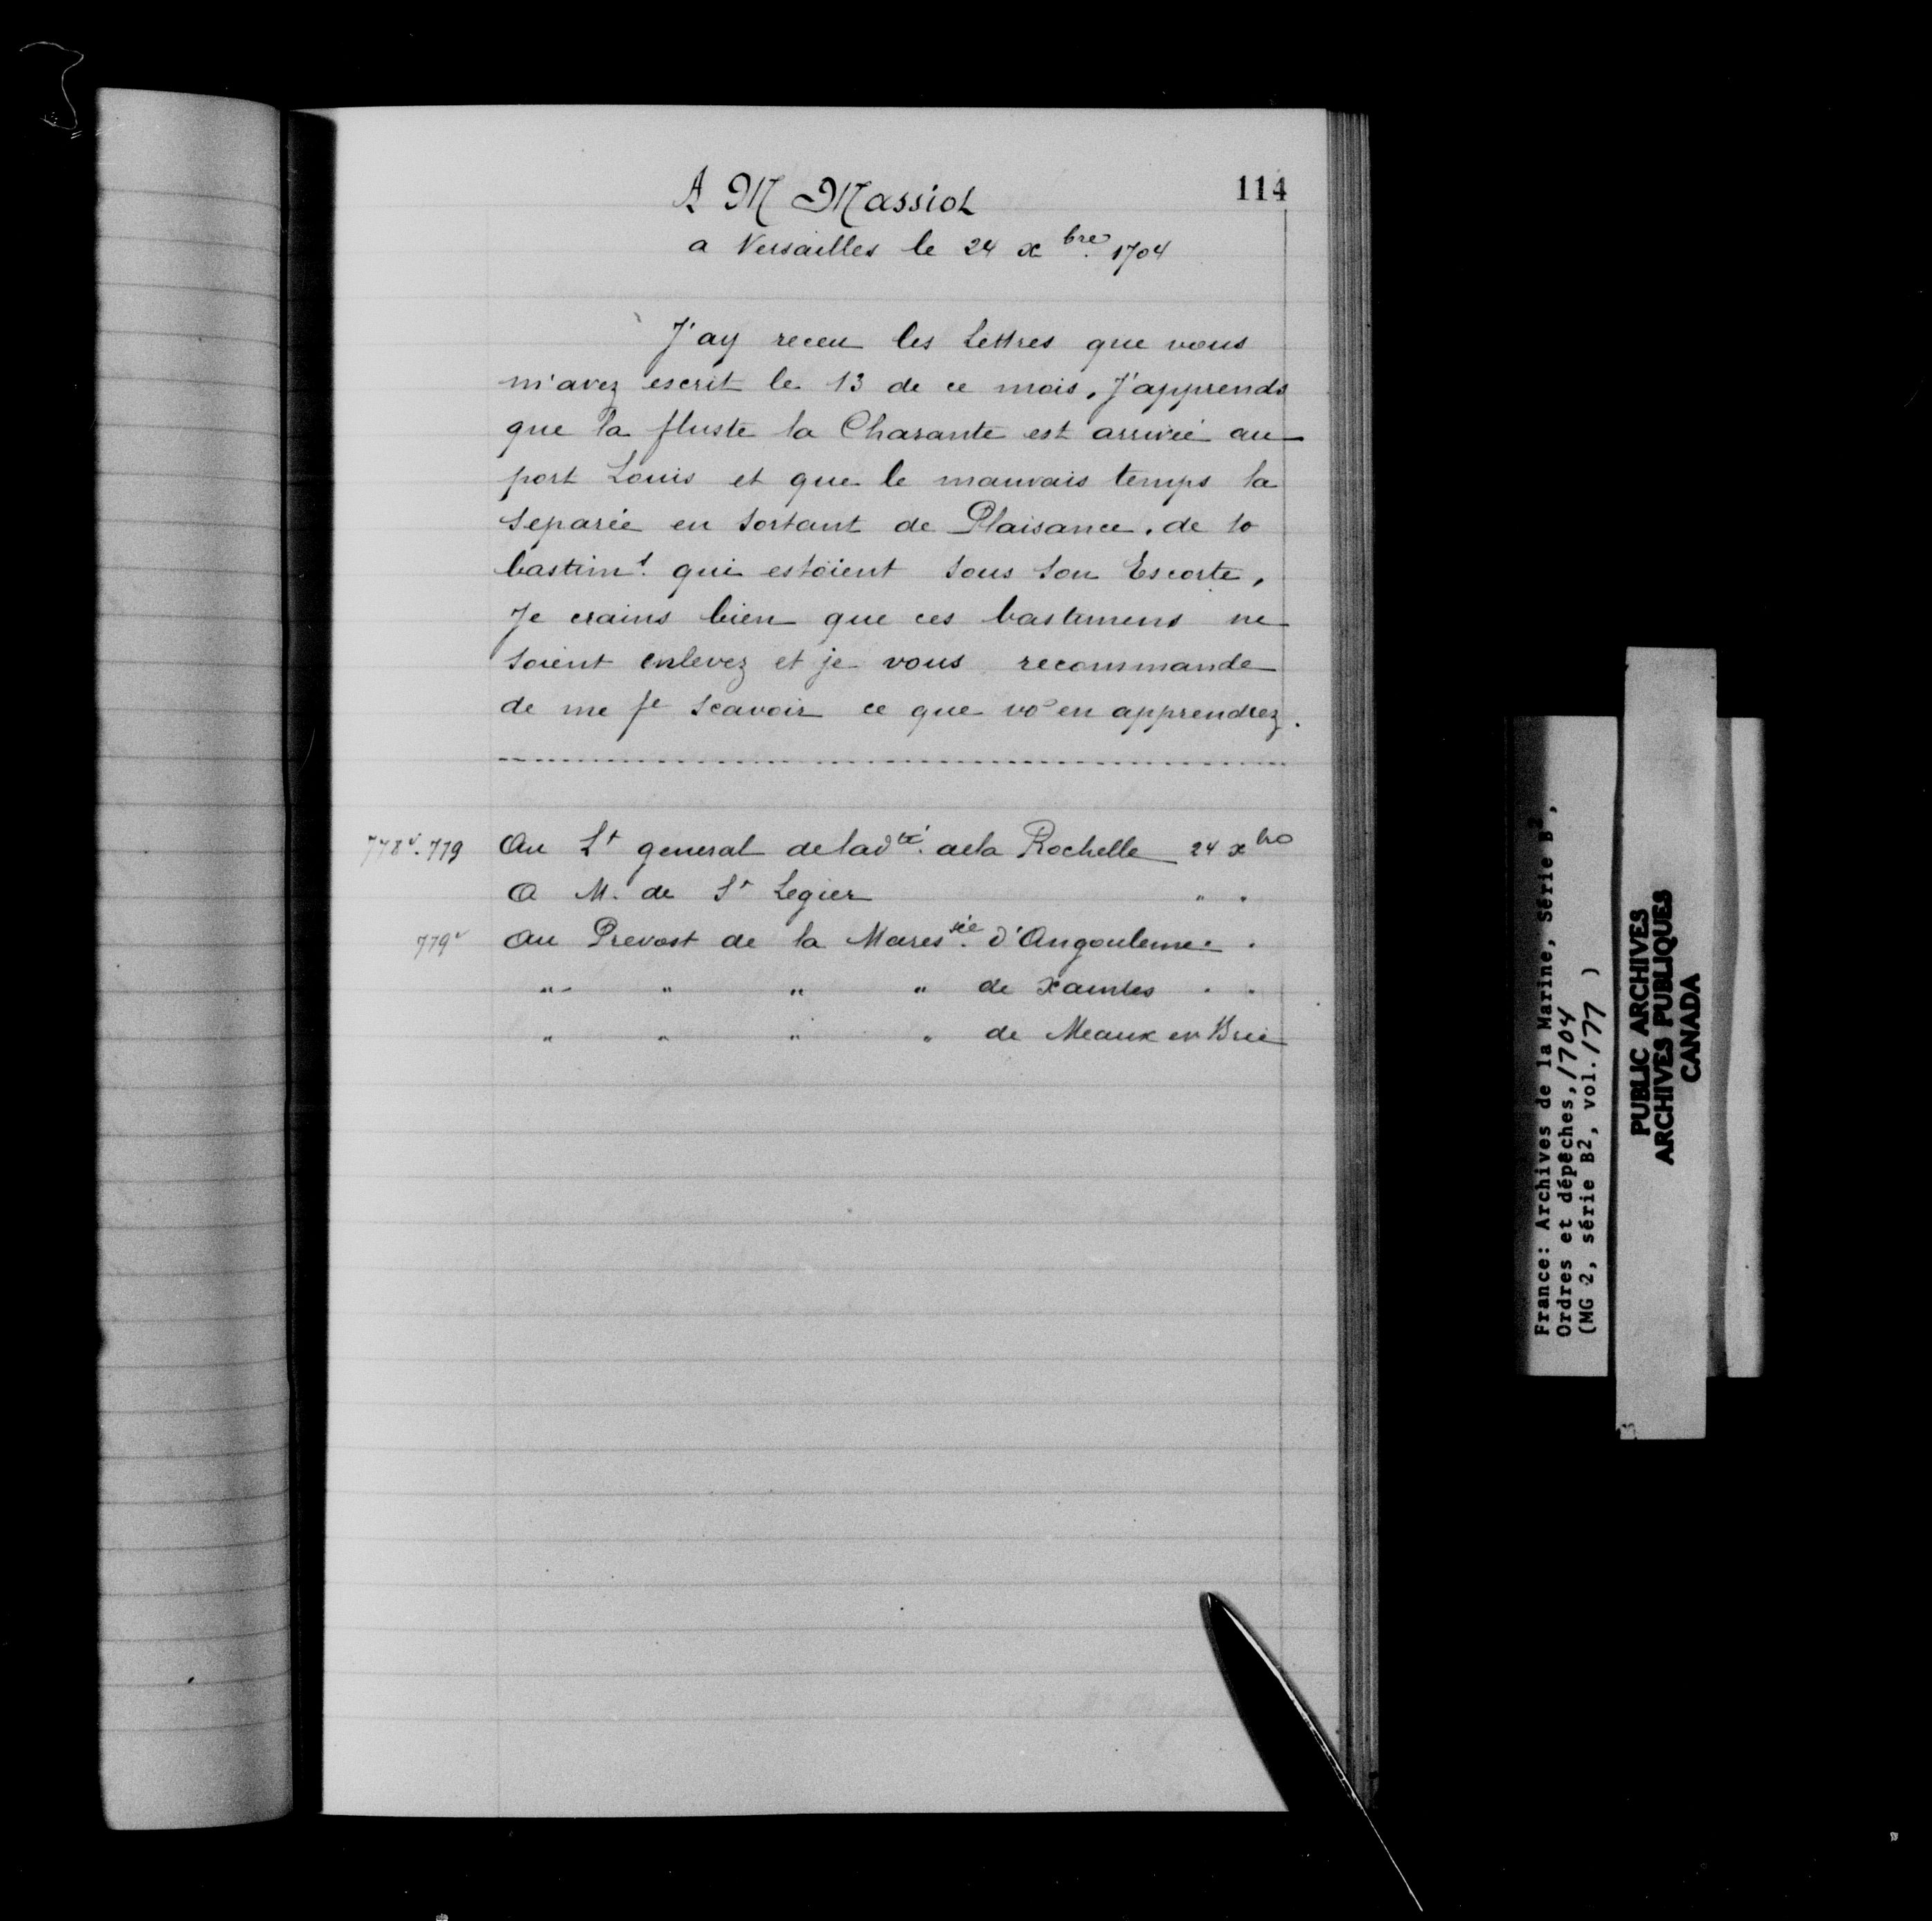 114
A M Massiot
a Versailles le 24 xbre. 1704
J'ay receu les Lettres que vous
m'avez escrit le 13 de ce mois, J'apprends
que la fluste la Charante est arrivée au
port Louis et que le mauvais temps la
separée en sortant de Plaisance. de 10
bastimt. qui estoient sous son Escorte,
Je crains bien que ces bastimens ne
soient enlevez et je vous recommande
de me fe scavoir ce que vo en apprendrez.
778v. 779 Au Lt general de lad té. de la Rochelle 24 xbre
A M. de St Legier " "
779v Au Prevost de la Maressée. d'Angouleme " "
" " " " de Xaintes " "
" " " " de Meaux en Brie
France: Archives de la Marine, Série B2,
Ordres et dépêches, 1704
(MG 2, série B2, vol. 177 )
PUBLIC ARCHIVES
ARCHIVES PUBLIQUES
CANADA